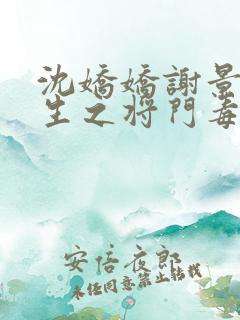 沈嬌嬌謝景
生之将門毒
安倍夜郎
未经同意禁止转载